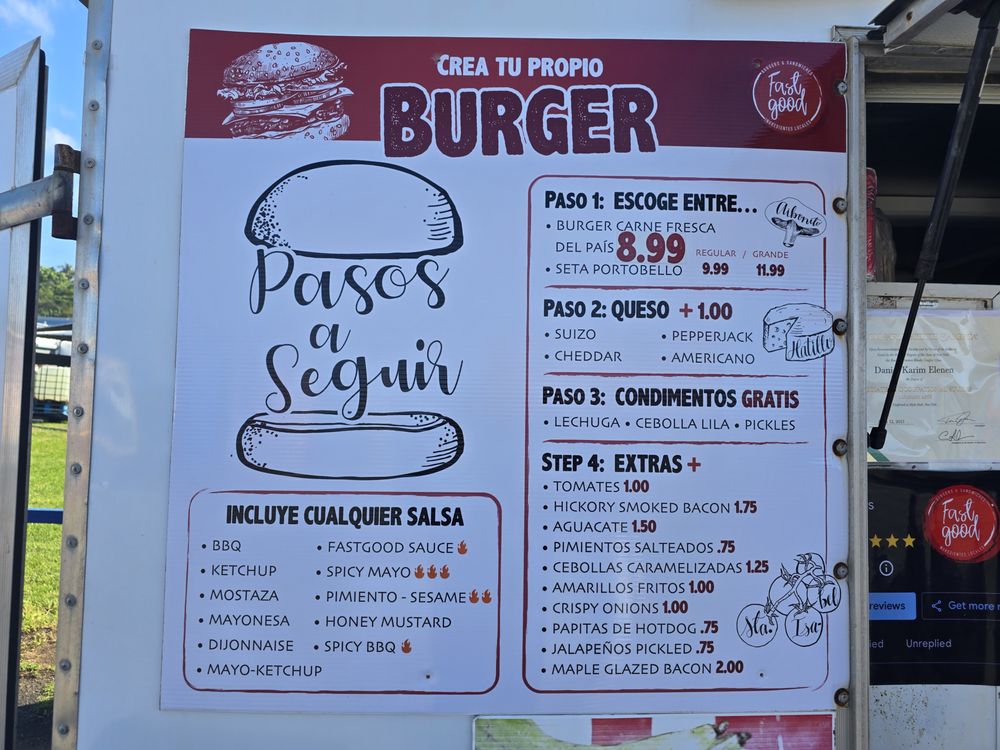 CREA TU PROPIO
BURGER
BURGERS & SANDWICHES
Fast
good
INGREDIENTES LOCALES
Pasos
a
Seguir
INCLUYE CUALQUIER SALSA
• BBQ
• KETCHUP
• MOSTAZA
• MAYONESA
• DIJONNAISE
• MAYO-KETCHUP
• FASTGOOD SAUCE
• SPICY MAYO
• PIMIENTO - SESAME
• HONEY MUSTARD
• SPICY BBQ
PASO 1: ESCOGE ENTRE...
Aibonito
• BURGER CARNE FRESCA
DEL PAÍS 8.99
REGULAR / GRANDE
• SETA PORTOBELLO 9.99 11.99
PASO 2: QUESO + 1.00
• SUIZO • PEPPERJACK
• CHEDDAR • AMERICANO
Hatillo
PASO 3: CONDIMENTOS GRATIS
• LECHUGA • CEBOLLA LILA • PICKLES
STEP 4: EXTRAS +
• TOMATES 1.00
• HICKORY SMOKED BACON 1.75
• AGUACATE 1.50
• PIMIENTOS SALTEADOS .75
• CEBOLLAS CARAMELIZADAS 1.25
• AMARILLOS FRITOS 1.00
• CRISPY ONIONS 1.00
• PAPITAS DE HOTDOG .75
• JALAPEÑOS PICKLED .75
• MAPLE GLAZED BACON 2.00
Sta. Isabel
Karim Elenen
Fast
good
INGREDIENTES LOCALES
reviews
Get more
Unreplied